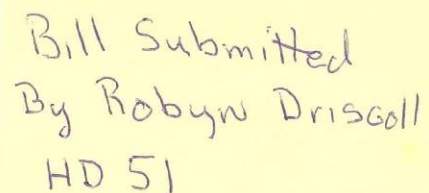 Bill Submitted
By Robyn Driscoll
HD 51